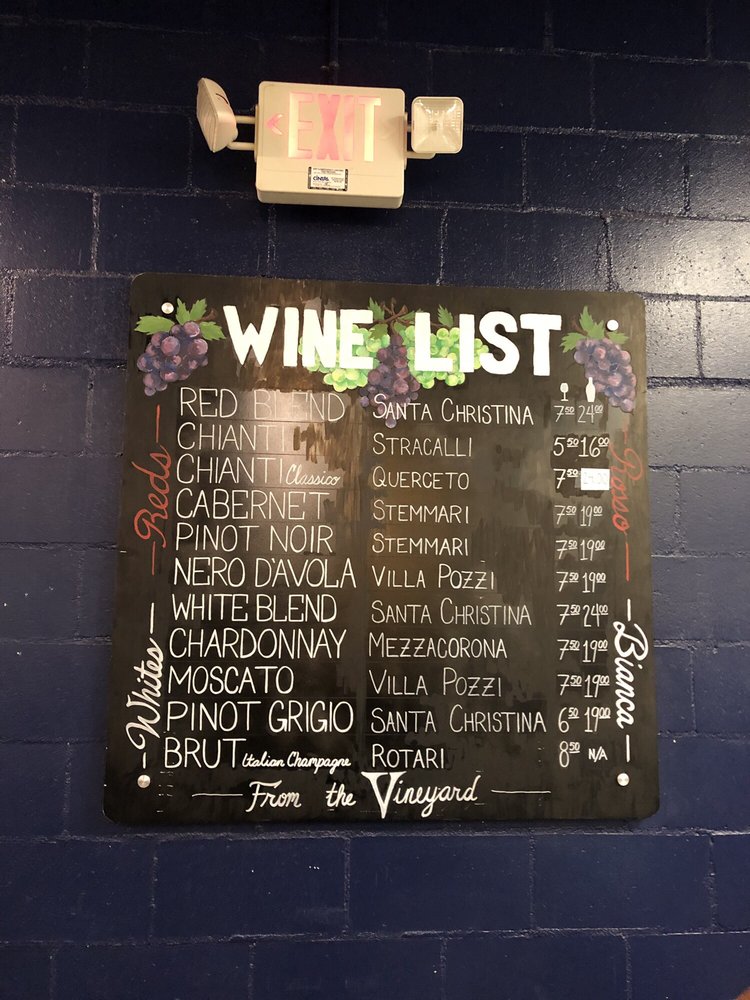 EXIT
WINE LIST
Reds
Rosso
RED BLEND SANTA CHRISTINA 7⁵⁰ 24⁰⁰
CHIANTI STRACALLI 5⁵⁰ 16⁰⁰
CHIANTI Classico QUERCETO 7⁵⁰
CABERNET STEMMARI 7⁵⁰ 19⁰⁰
PINOT NOIR STEMMARI 7⁵⁰ 19⁰⁰
NERO D'AVOLA VILLA POZZI 7⁵⁰ 19⁰⁰
Whites
Bianca
WHITE BLEND SANTA CHRISTINA 7⁵⁰ 24⁰⁰
CHARDONNAY MEZZACORONA 7⁵⁰ 19⁰⁰
MOSCATO VILLA POZZI 7⁵⁰ 19⁰⁰
PINOT GRIGIO SANTA CHRISTINA 6⁵⁰ 19⁰⁰
BRUT Italian Champagne ROTARI 8⁵⁰ N/A
From the Vineyard